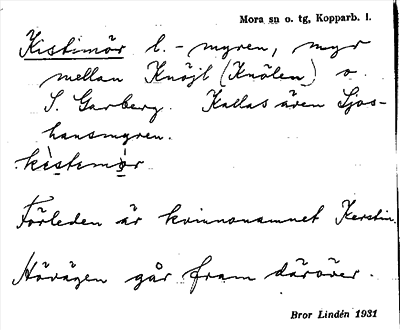 Mora sn o. tg, Kopparb. l.
Kistimör l. - myren, myr
mellan Knöjl (Knölen) o.
S. Garberg. Kallas även Ljos-
hansmyren.
kìstemòr
Förleden är kvinnonamnet Kerstin.
Hövägen går fram däröver.
Bror Lindén 1931